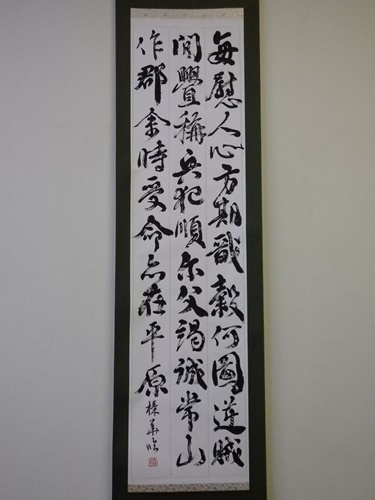 每慰人心方期戩穀何圖逆賊
閒釁稱兵犯順尓父竭誠常山
作郡余時受命亦在平原 華臨